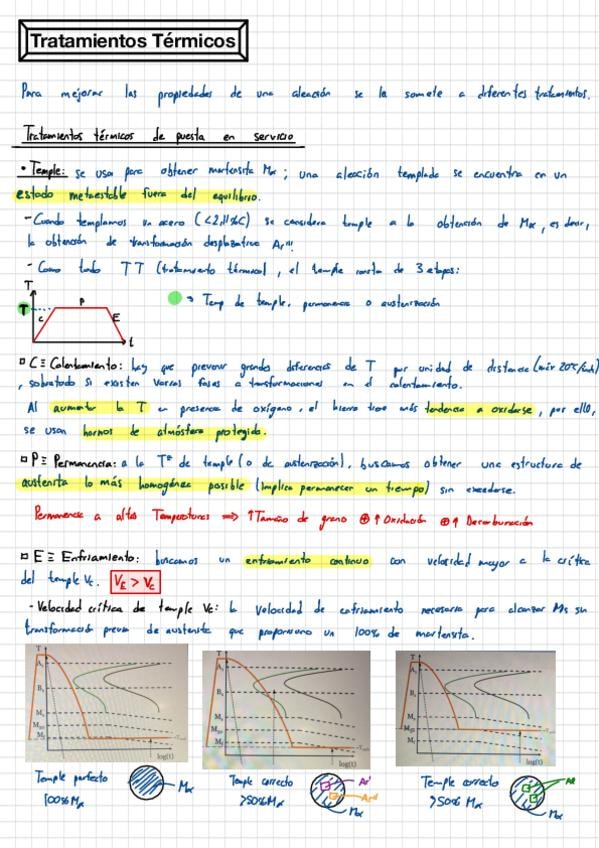 Tratamientos Térmicos
Para mejorar las propiedades de una aleación se la somete a diferentes tratamientos.
Tratamientos térmicos de puesta en servicio
• Temple: se usa para obtener martensita Mα; una aleación templada se encuentra en un
estado metaestable fuera del equilibrio.
- Cuando templamos un acero (<2,11%C) se considera temple a la obtención de Mα, es decir,
la obtención de transformación desplazativa Ar'''
- Como todo TT (tratamiento térmico), el temple consta de 3 etapas:
T
P
T
C
E
t
→ Temp de temple, permanencia o austenización
C ≡ Calentamiento: hay que prevenir grandes diferencias de T por unidad de distancia (máx 20°C/
, sobretodo si existen varias fases o transformaciones en el calentamiento.
Al aumentar la T en presencia de oxígeno, el hierro tiene más tendencia a oxidarse, por ello,
se usan hornos de atmósfera protegida.
P ≡ Permanencia: a la Tª de temple (o de austenización), buscamos obtener una estructura de
austenita lo más homogénea posible (implica permanecer un tiempo) sin excederse.
Permanencia a altas Temperaturas ⟹ ↑Tamaño de grano ⊕ ↑Oxidación ⊕ ↑ Decarburación
E ≡ Enfriamiento: buscamos un enfriamiento continuo con velocidad mayor a la crítica
del temple Vc. VE > Vc
- Velocidad crítica de temple Vc: la velocidad de enfriamiento necesaria para alcanzar Ms sin
transformación previa de austenita que proporciona un 100% de martensita.
T
log(t)
T
log(t)
T
log(t)
Temple perfecto
100% Mα
Mα
Temple correcto
>50% Mα
Ar'
Mα
Temple correcto
>50% Mα
Mα